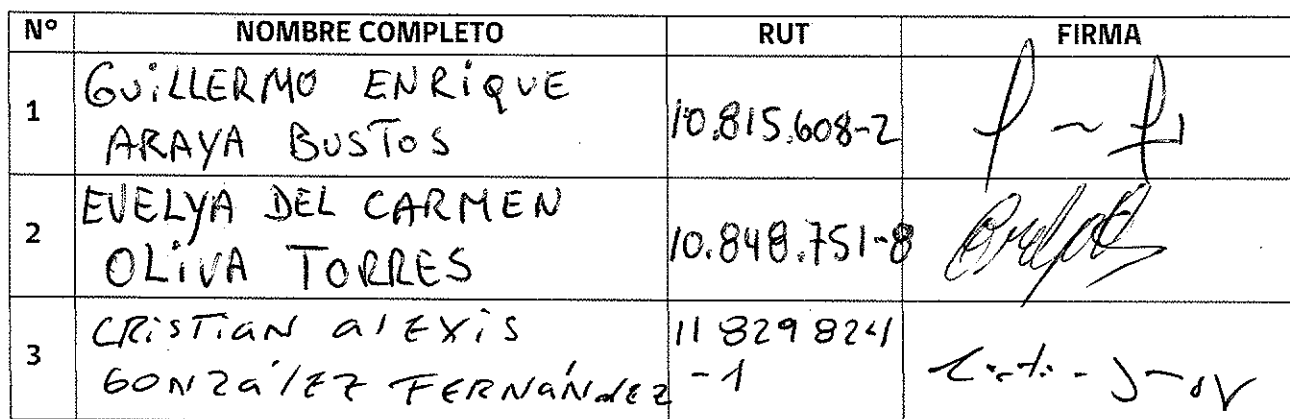 Nº NOMBRE COMPLETO RUT FIRMA
1 GUILLERMO ENRIQUE
ARAYA BUSTOS 10.815.608-2
2 EVELYA DEL CARMEN
OLIVA TORRES 10.848.751-8
3 CRISTIAN ALEXIS 11 829 824
GONZáLEZ FERNáNdEZ -1